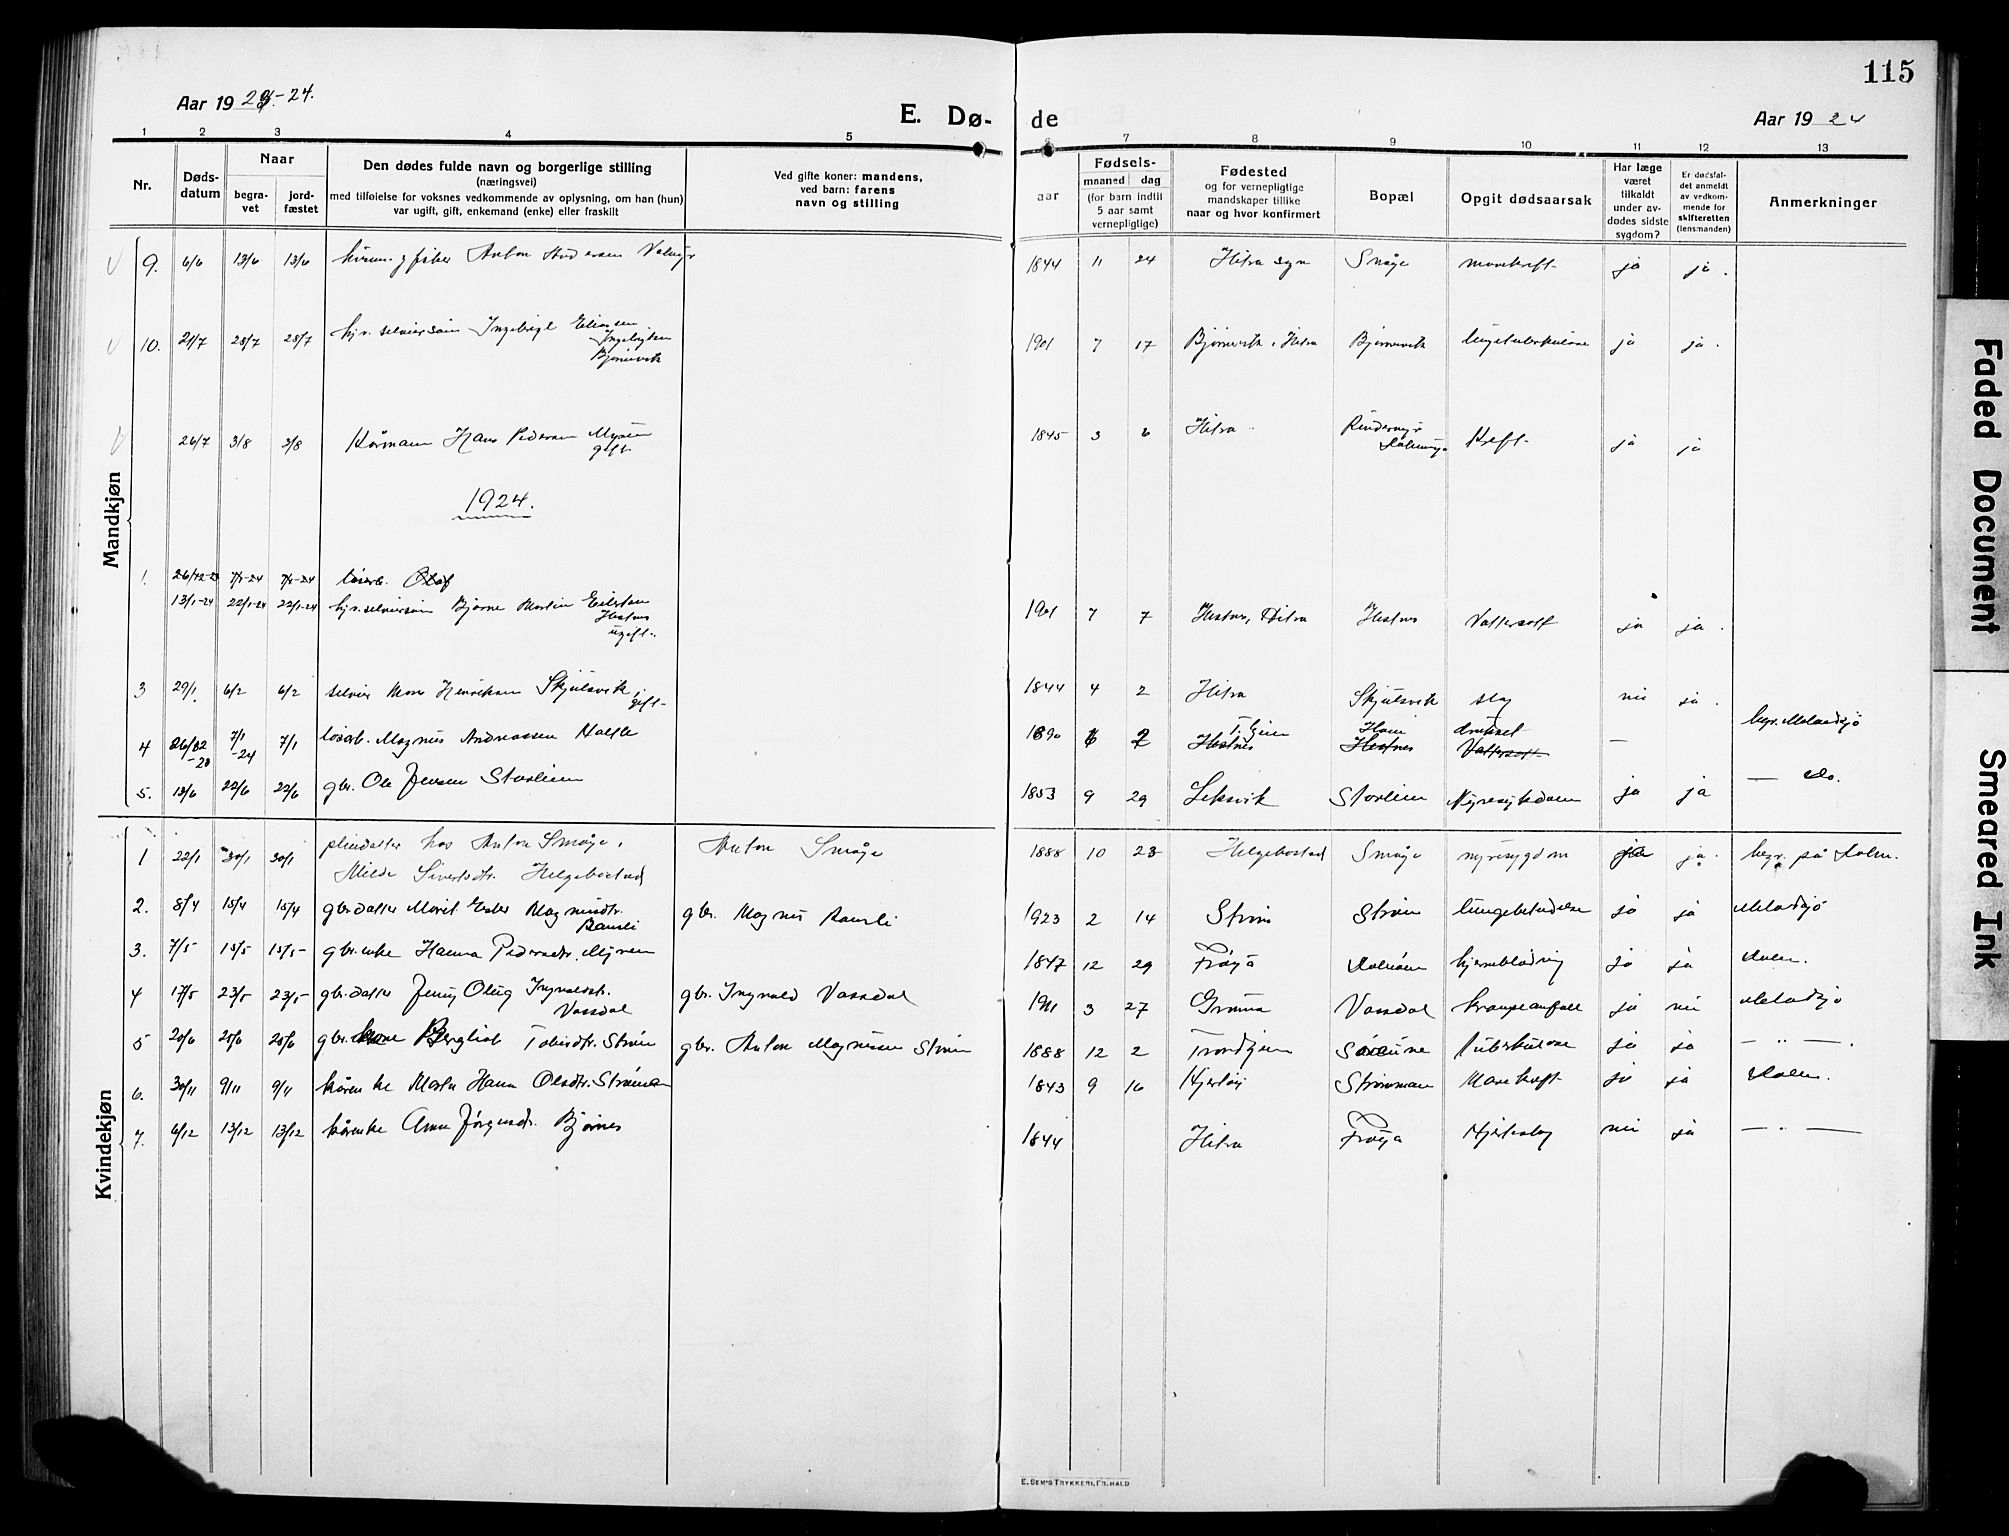 115
Aar 1923-24.
E. Dø-
de
Aar 1924
1 2 3 4 5 6 7 8 9 10 11 12 13
Nr.
Døds-
datum
Naar
begra-
vet
jord-
fæstet
Den dødes fulde navn og borgerlige stilling
(næringsvei)
med tilføielse for voksnes vedkommende av oplysning, om han (hun)
var ugift, gift, enkemand (enke) eller fraskilt
Ved gifte koner: mandens,
ved barn: farens
navn og stilling
Fødsels-
aar
maaned dag
(for barn indtil
5 aar samt
vernepligtige)
Fødested
og for vernepligtige
mandskaper tillike
naar og hvor konfirmert
Bopæl
Opgit dødsaarsak
Har læge
været
tilkaldt
under av-
dødes sidste
sygdom?
Er dødsfal-
det anmeldt
av vedkom-
mende for
skifteretten
(lensmanden)
Anmerkninger
Mandkjøn
9. 6/6 13/6 13/6 Anton Andersen 1844 11 24 Hitra Smage mavekreft ja ja.
10. 21/7 28/7 28/7 Ingebrigt Eliassen 1901 7 17 Bjørnevik, Hitra Bjørnevik lungetuberkulose ja ja.
Ingebrigtsen
Bjørnevik
26/7 3/8 3/8 Kårmann Hans Pedersen Myren 1845 3 6 Hitra Kreft ja ja
gift
1924.
1. 26/12-23 7/1-24 7/1-24 løsarb. Olaf
13/1-24 22/1-24 22/1-24 Bjarne Martin Eilertsen 1901 7 7 Hestnes, Hitra Hestnes Vattersott ja ja.
Hestnes
ugift.
3 29/1 6/2 6/2 selveier Mons Henriksen Skjulsvik, 1844 4 2 Hitra Skjulsvik slag nei ja.
gift
4 26/12-23 7/1-24 7/1 løsarb. Magnus Andreassen 1890 6 2 Hestnes Hestnes druknet Vattersott — begr. Melandsjø
5. 13/6 22/6 22/6 gbr. Ole Jensen Storlien 1853 9 29 Leksvik Storlien Nyresykdom ja ja — do.
Kvindekjøn
1 22/1 30/1 30/1 pleiedatter hos Anton Smage, Anton Smage 1888 10 23 Helgebostad Smage nyresygdom ja ja. begr. på Dolm.
Milda Sivertsdtr. Helgebostad
2. 8/4 15/4 15/4 gbr.datter Marit Ester Magnusdtr. gbr. Magnus Ramli 1923 2 14 Strøm Strøm lungebetendelse ja ja Melandsjø
Ramli
3. 7/5 15/5 15/5 gbr.enke Hanna Pedersdtr. Myren 1847 12 29 Frøya hjerneblødning ja ja Dolm.
4 17/5 23/5 23/5 gbr.datter Jenny Olug Ingvaldsdtr. gbr. Ingvald Vassdal 1911 3 27 Vassdal krampeanfall ja nei Melandsjø
Vassdal
5 20/6 25/6 25/6 gbr.kone Bergliot Tobiasdtr. Strøm gbr. Anton Magnussen Strøm 1888 12 2 Trondhjem tuberkulose ja ja — " —.
6. 30/11 9/11 9/11 kårenke Marta Hanna Olsdtr. Strømman 1843 9 16 Strømman Mavekreft ja ja Dolm.
7. 6/12 13/12 13/12 kårenke Anne Jørgensdtr. Bjørnes 1844 Hitra Frøya Hjerteslag nei ja — " —
E. SEM'S TRYKKERI, FR.HALD
Faded Document
Smeared Ink